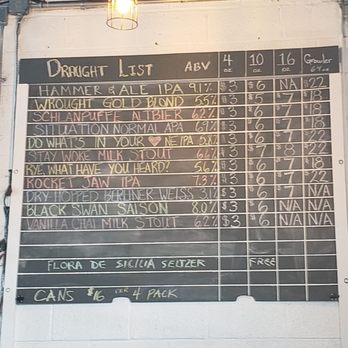 DRAUGHT LIST ABV 4 oz 10 oz 16 oz Growler 64 oz
HAMMER & ALE IPA 9.1% $3 $6 N/A $22
WROUGHT GOLD BLOND 5.5% $3 $5 $7 $18
SCHLANPUFFE ALTBIER 6.2% $3 $6 $7
SITUATION NORMAL APA $3 $6 $7 $18
DO WHAT'S IN YOUR ♥ NEIPA 5.8% $3 $6 $7 $22
STAY WOKE MILK STOUT $3 $8 $22
RYE WHAT HAVE YOU HEARD? 5.6% $3 $6 $7 $18
ROCKET JAW IPA 7.3% $3 $6 $7 $22
DRY-HOPPED BERLINER WEISS $3 $6 $7 N/A
BLACK SWAN SAISON 8.0% $3 $6 N/A N/A
VANILLA CHAI MILK STOUT 6.2% $3 $6 N/A N/A
FLORA DE SICILIA SELTZER FREE
CANS $16 PER 4 PACK